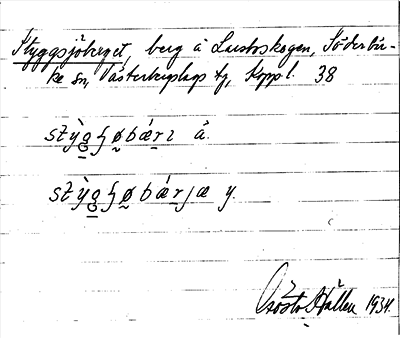 Styggsjöberget, berg å Lustoskogen, Söderbär-
ke sn, Västerbergslags tg, Koppl. 38
stỳg ʃøbǽrɪ å.
stỳg ʃøbǽrjæ y.
Gösta Hallén 1934.